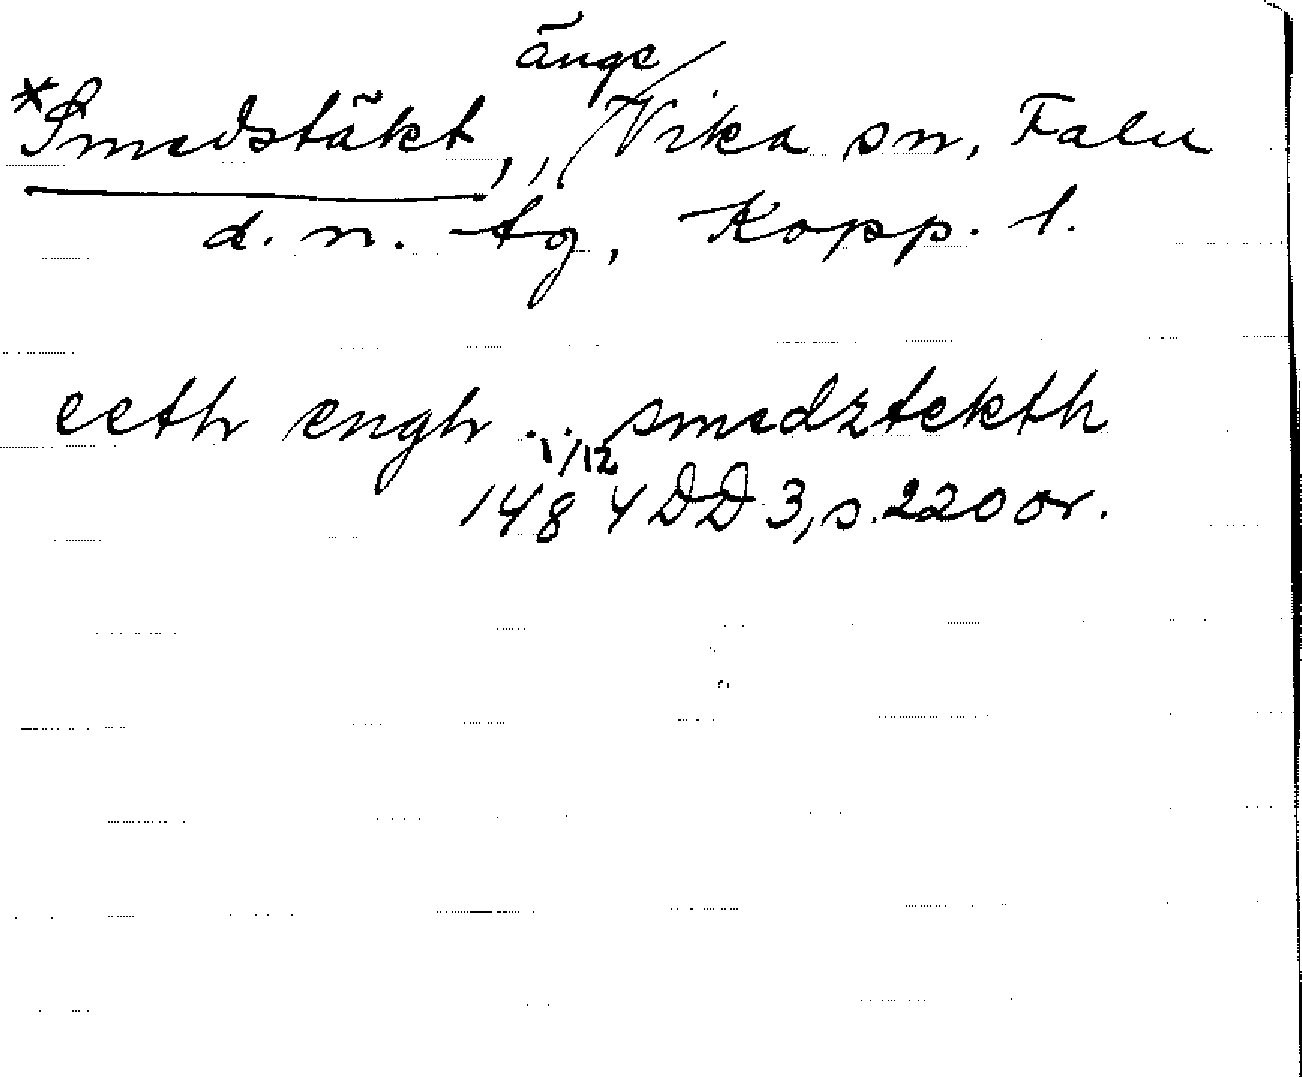 änge
*Smedstäkt, , Vika sn, Falu
d. n. tg, Kopp. l.
eeth engh ... smedztekth
1/12
1484 DD 3, s. 220 or.